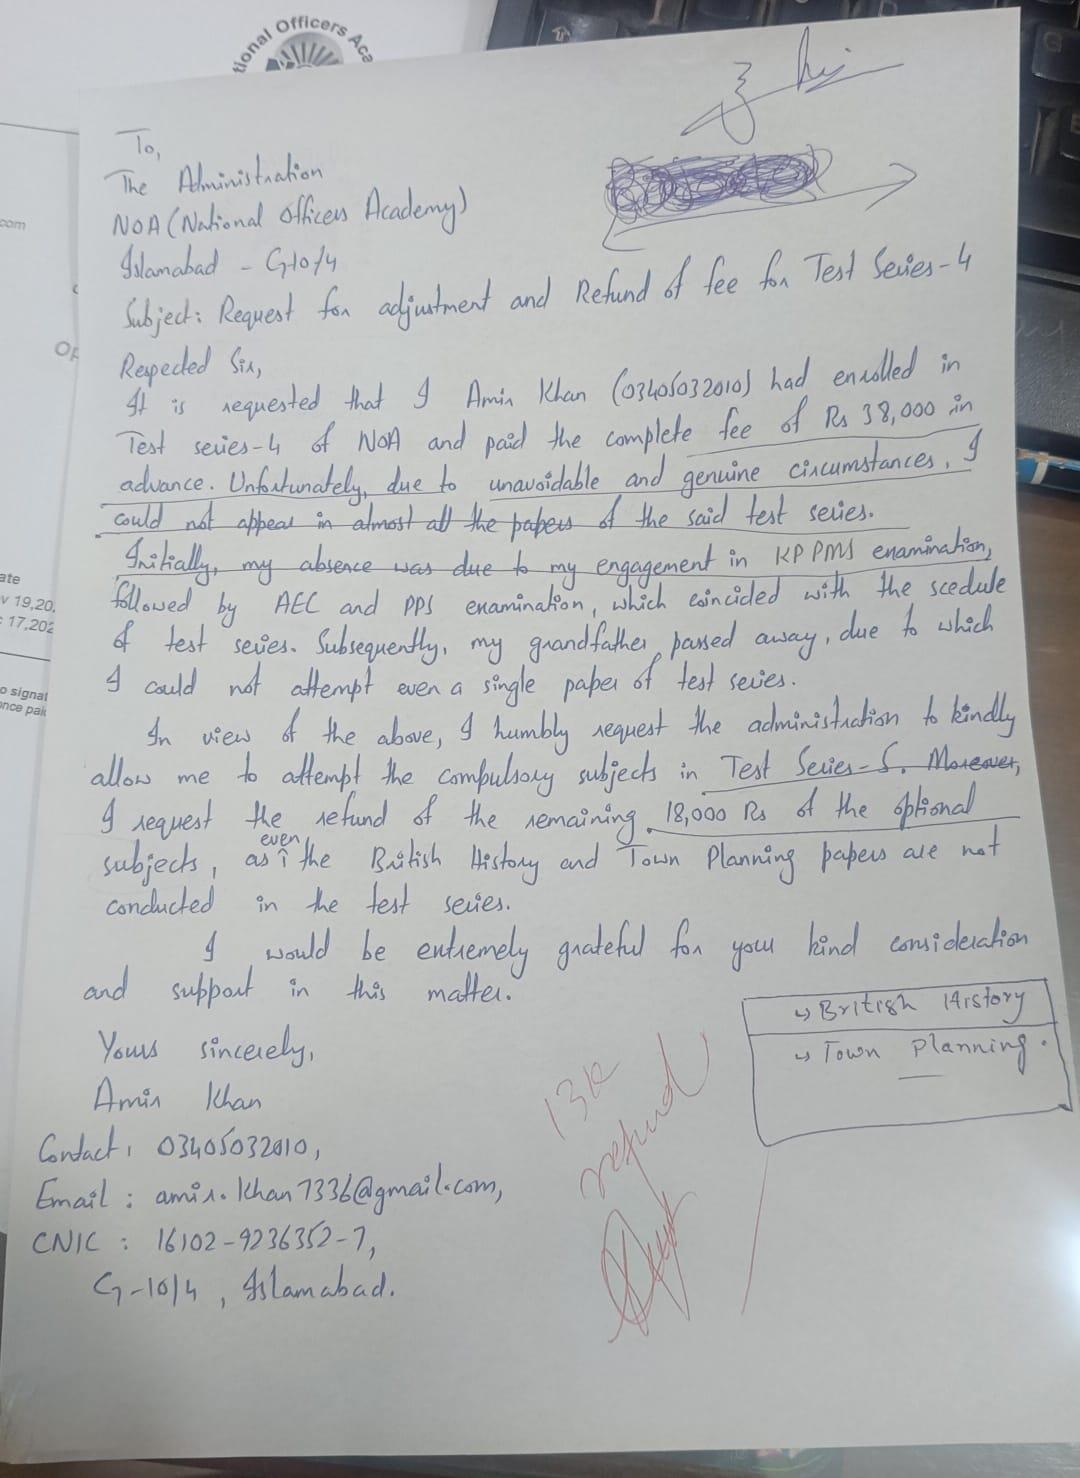 tional Officers Aca
To,
The Administration
NOA (National officers Academy)
Islamabad - G-10/4
Subject: Request for adjustment and Refund of fee for Test Series-4
Respected Sir,
It is requested that I Amir Khan (03405032010) had enrolled in
Test series-4 of NOA and paid the complete fee of Rs 38,000 in
advance. Unfortunately, due to unavoidable and genuine circumstances, I
could not appear in almost all the papers of the said test series.
Initially, my absence was due to my engagement in KP PMS examination,
followed by AEC and PPS examination, which coincided with the scedule
of test series. Subsequently, my grandfather passed away, due to which
I could not attempt even a single paper of test series.
In view of the above, I humbly request the administration to kindly
allow me to attempt the compulsory subjects in Test Series-5. Moreover,
I request the refund of the remaining 18,000 Rs of the optional
subjects, as even the British History and Town Planning papers are not
conducted in the test series.
I would be extremely grateful for your kind consideration
and support in this matter.
Yours sincerely,
Amir Khan
Contact: 03405032010,
Email: amir.khan7336@gmail.com,
CNIC: 16102-9236352-7,
G-10/4, Islamabad.
British History
Town Planning.
13k
refund
com
ate
v 19,20
17,202
o signat
once paid